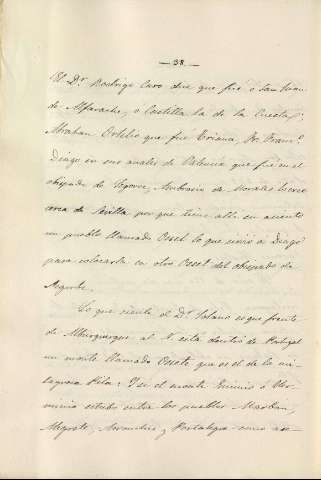 — 38 —
El Dr. Rodrigo Caro dice que fué ó San Juan
de Alfarache, ó Castilla la de la Cuesta;
Abrahan Ortelio que fué Triana, Fr. Franco.
Diago en sus anales de Valencia que fué en el
obispado de Segorve, Ambrosio de Morales
cerca de Sevilla por que tiene allí su asiento
un pueblo llamado Osset lo que sirvió a Diago
para colocarla en otro Osset del obispado de
Segorbe.
Lo que siente el Dr. Solano es que frente
de Alburquerque al N. está dentro de Portugal
un monte llamado Oseto que es el de la mi-
lagrosa Pila: Y en el monte Erminio ó Her-
minio estaba entre los pueblos Marban,
y Portalegre como